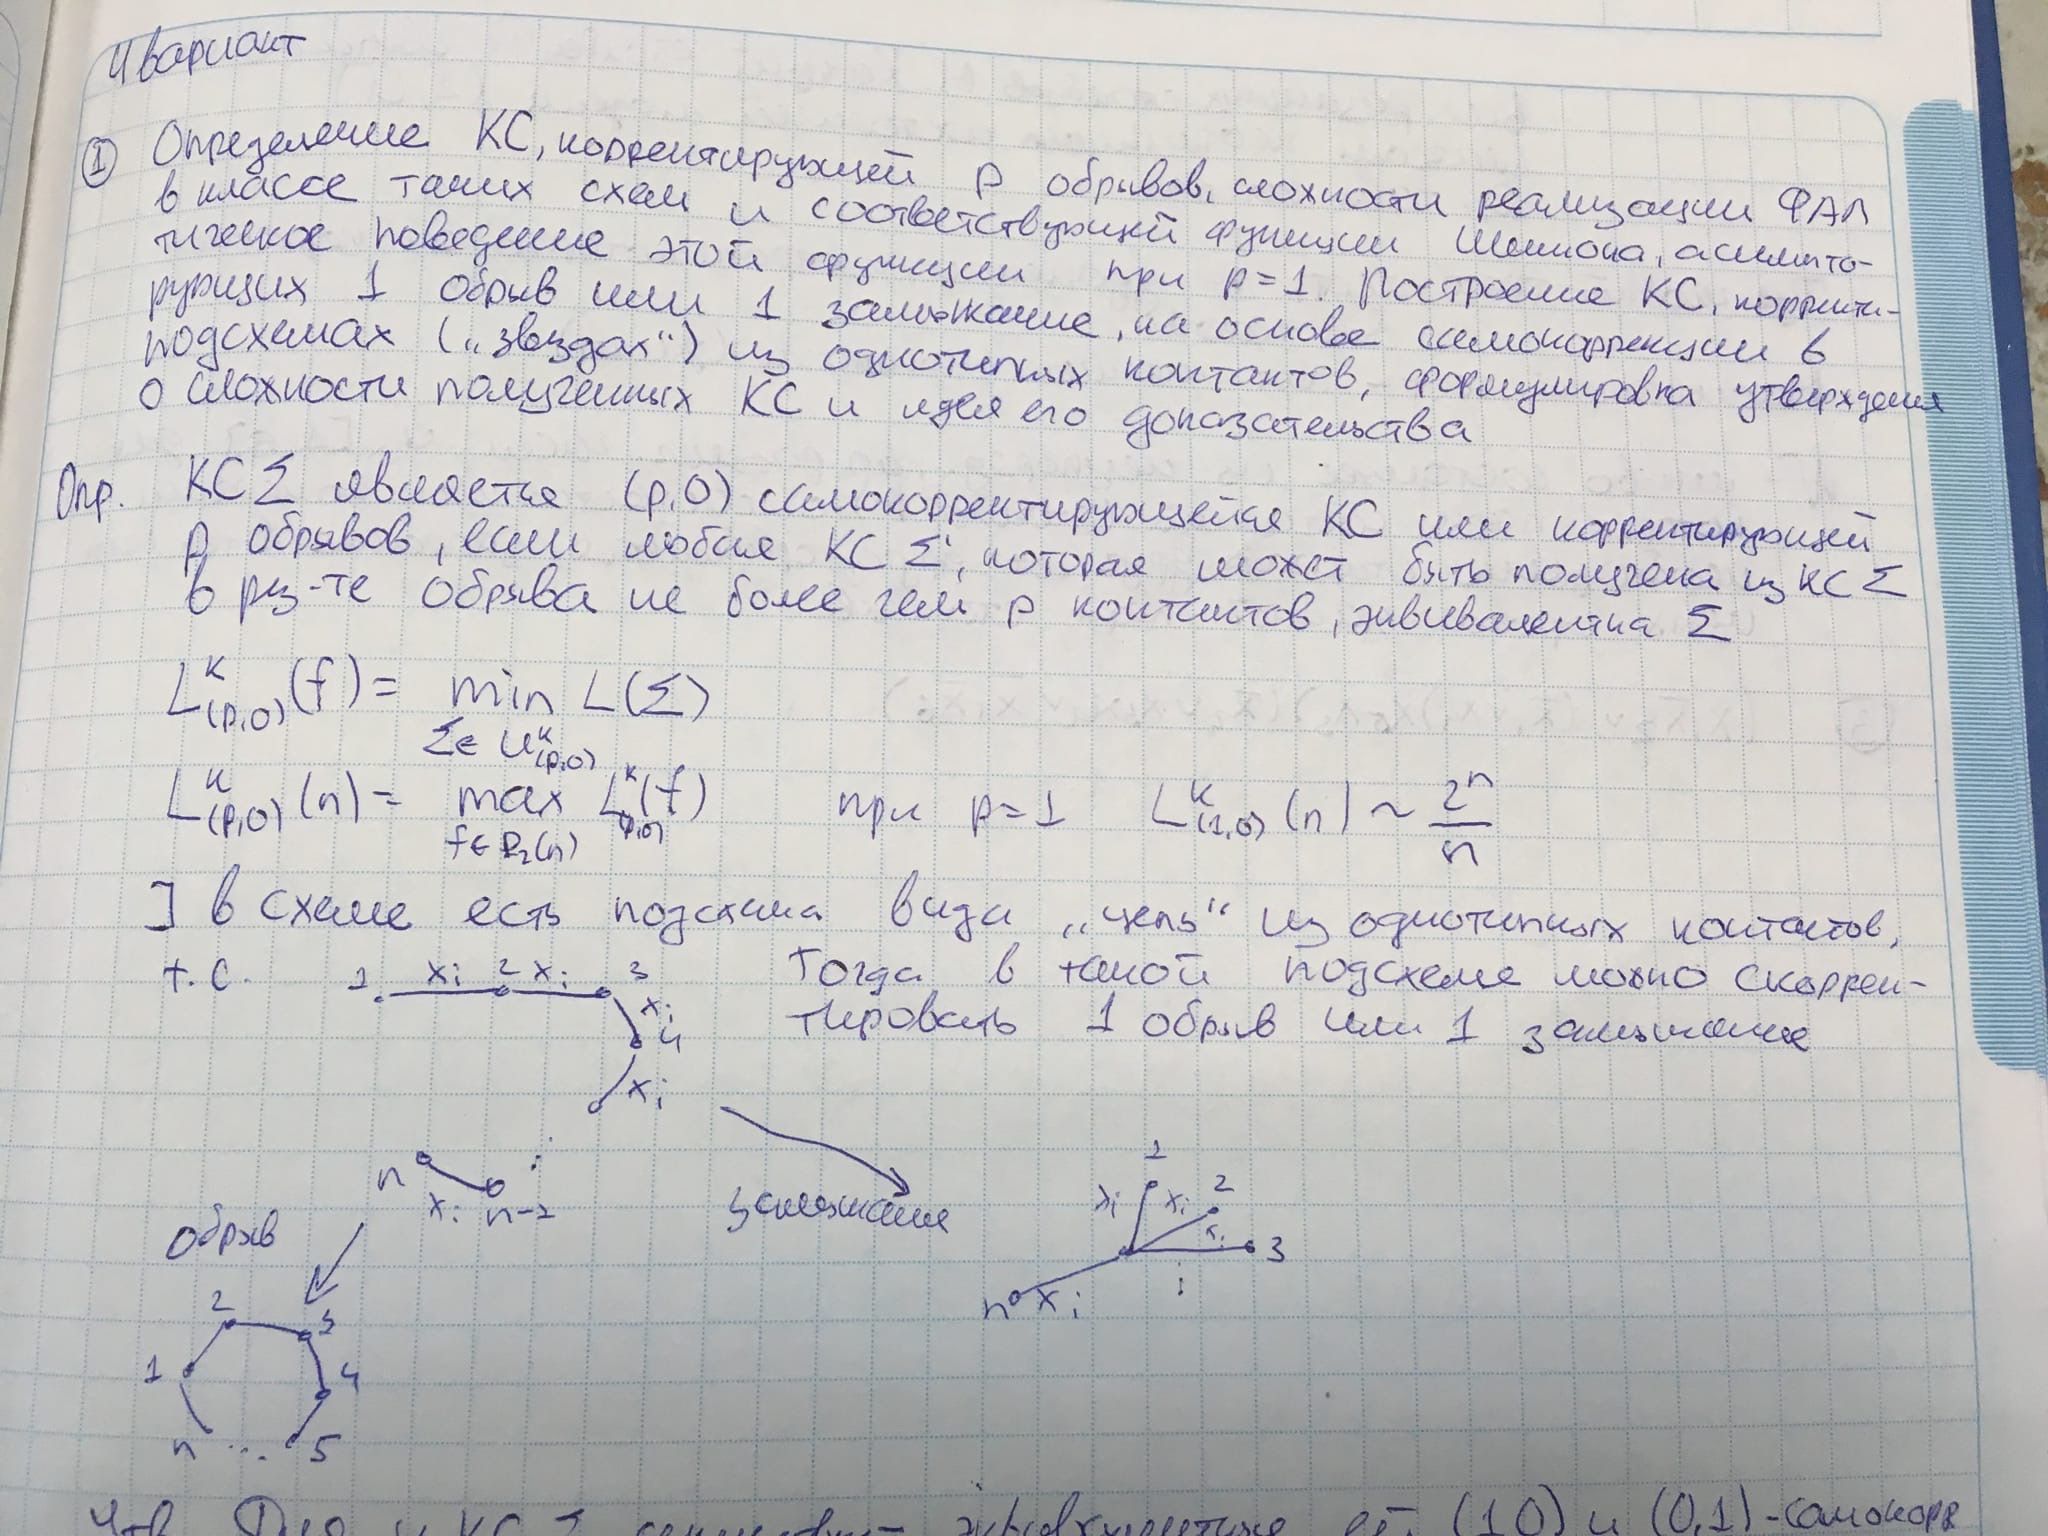 4 вариант
① Определение КС, корректирующей p обрывов, сложности реализации ФАЛ
в классе таких схем и соответствующей функции Шеннона, асимпто-
тическое поведение этой функции при p=1. Построение КС, корректи-
рующих 1 обрыв или 1 замыкание, на основе самокоррекции в
подсхемах („звездах“) из однотипных контактов, формулировка утверждения
о сложности полученных КС и идея его доказательства
Опр. КС Σ является (p,0) самокорректирующейся КС или корректирующей
p обрывов, если любая КС Σ', которая может быть получена из КС Σ
в рез-те обрыва не более чем p контактов, эквивалентна Σ
L^K_(p,0)(f) = min L(Σ)
Σ∈ U^K_(p,0)
L^K_(p,0)(n) = max L^K_(p,0)(f) при p=1 L^K_(1,0)(n) ~ 2^n/n
f∈P_2(n)
] в схеме есть подсхема вида „цепь“ из однотипных контактов,
т.е. 1 xi 2 xi 3 Тогда в такой подсхеме можно скоррек-
xi 4 тировать 1 обрыв или 1 замыкание
xi
n xi
обрыв замыкание
1 xi 2 xi 3 xi
n xi
2 3
1 4
n ... 5
КС Σ (1,0) и (0,1)-самокорр